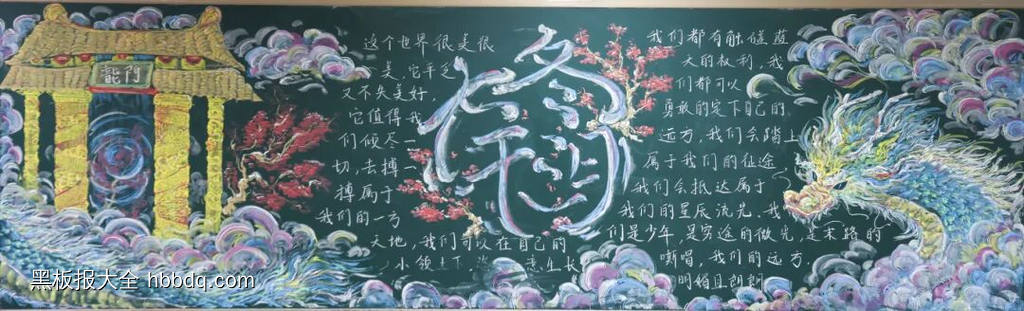 龍門
这个世界很美很
美,它平乏
又不失美好,
它值得我
们倾尽一
切,去搏一
搏属于
我们的一方
天地,我们可以在自己的
小领土下
意生长
我们都有触碰蓝
天的权利,我
们都可以
勇敢的定下自己的
远方,我们会踏上
属于我们的征途
我们会抵达属于
我们的星辰流光.我
们是少年,是穷途的微光,是末路的
嘶唱,我们的远方.
明媚且朗朗
黑板报大全 hbbdq.com